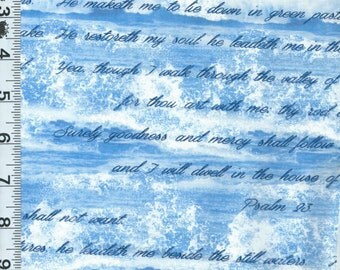 He maketh me to lie down in green past
s. He restoreth my soul: he leadeth me in the
ake. Yea, though I walk through the valley of
for thou art with me; thy rod
Surely goodness and mercy shall follow
and I will dwell in the house of
Psalm 23
shall not want.
tures: he leadeth me beside the still waters.
3
4
5
6
7
8
9